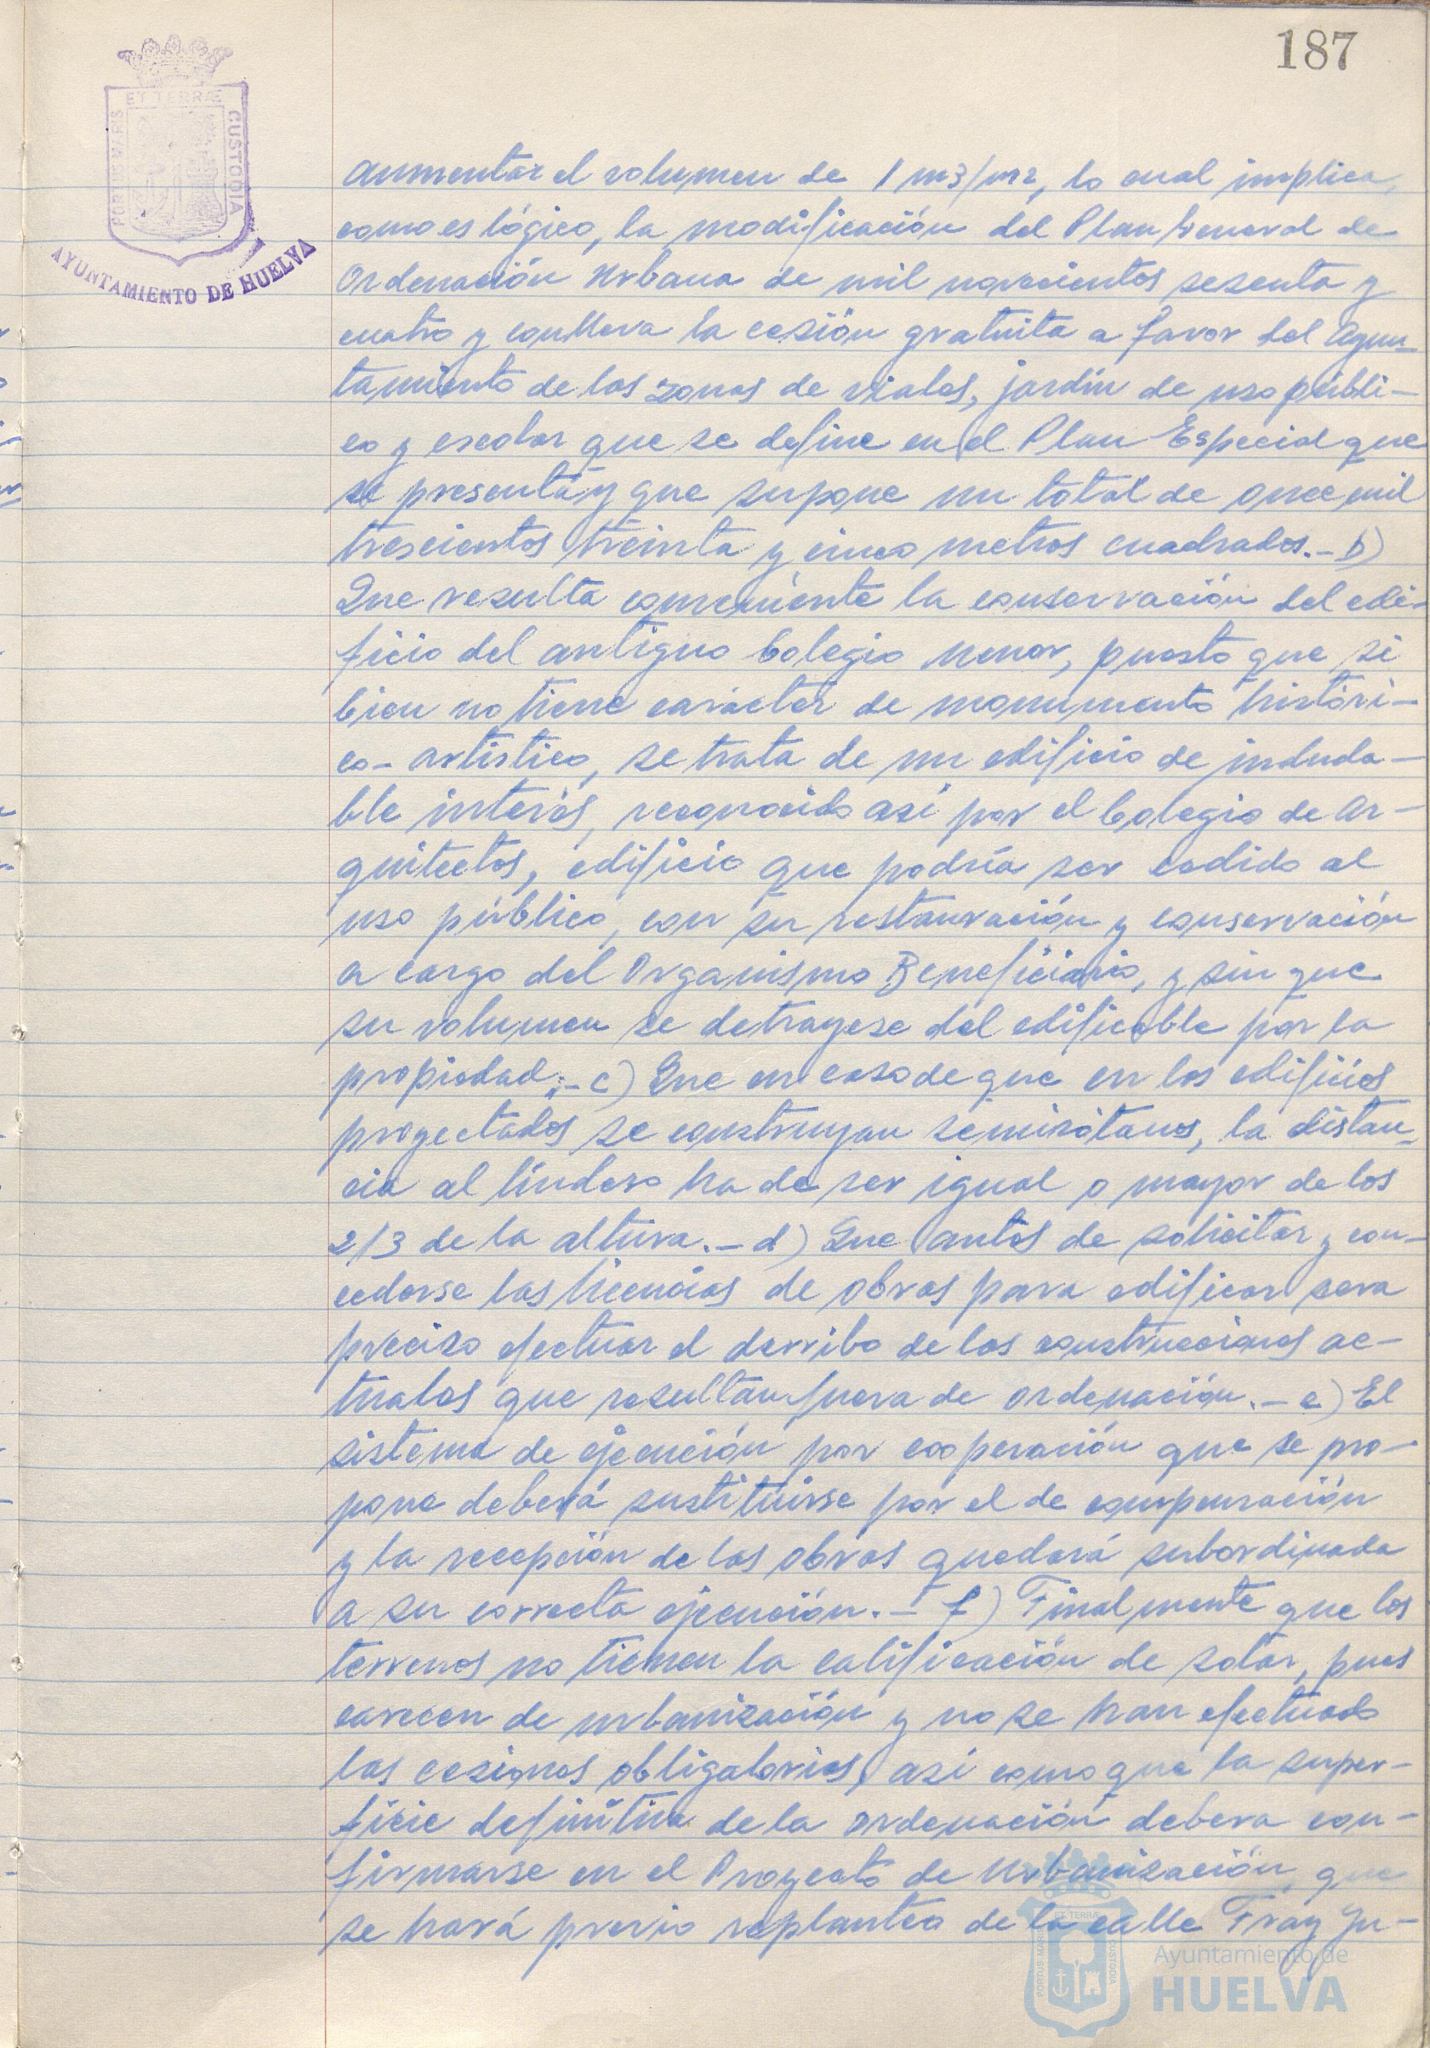 187
ET TERRÆ
PORTUS MARIS
CUSTODIA
AYUNTAMIENTO DE HUELVA
aumentar el volumen de 1 m3/m2, lo cual implica,
como es lógico, la modificación del Plan General de
Ordenación Urbana de mil novecientos sesenta y
cuatro y conlleva la cesión gratuita a favor del Ayun-
tamiento de las zonas de viales, jardín de uso públi-
co y escolar que se define en el Plan Especial que
se presenta y que supone un total de once mil
trescientos treinta y cinco metros cuadrados.- b)
Que resulta conveniente la conservación del edi-
ficio del antiguo Colegio Menor, puesto que si
bien no tiene carácter de monumento históri-
co-artístico, se trata de un edificio de induda-
ble interés, reconocido así por el Colegio de Ar-
quitectos, edificio que podría ser cedido al
uso público, con su restauración y conservación
a cargo del Organismo Beneficiario, y sin que
su volumen se detrayese del edificable por la
propiedad;- c) Que en caso de que en los edificios
proyectados se construyan semisótanos, la distan-
cia al lindero ha de ser igual o mayor de los
2/3 de la altura.- d) Que antes de solicitar y con-
cederse las licencias de obras para edificar sera
preciso efectuar el derribo de las construcciones ac-
tuales que resultan fuera de ordenación.- e) El
sistema de ejecución por cooperación que se pro-
pone deberá sustituirse por el de compensación
y la recepción de las obras quedará subordinada
a su correcta ejecución.- f) Finalmente que los
terrenos no tienen la calificación de solar, pues
carecen de urbanización y no se han efectuado
las cesiones obligatorias, así como que la super-
ficie definitiva de la ordenación debera con-
firmarse en el Proyecto de Urbanización, que
se hará previo replanteo de la calle Fray Ju-
ET TERRÆ
PORTUS MARIS
CUSTODIA
Ayuntamiento de
HUELVA